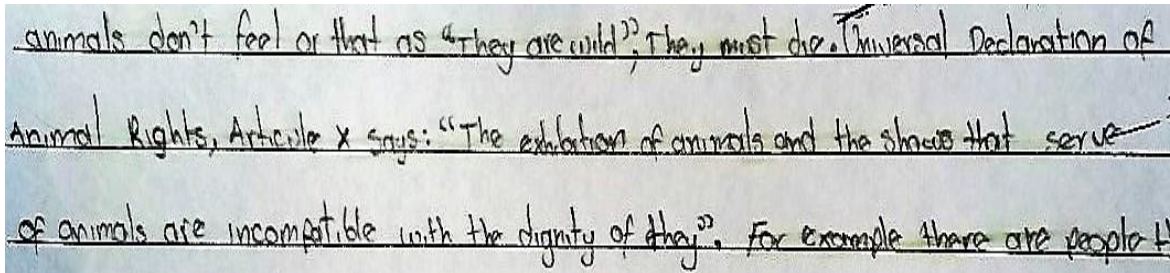 animals don't feel or that as "They are wild", They must die. Universal Declaration of
Animal Rights, Article X says: "The exhibition of animals and the shows that serve
of animals are incompatible with the dignity of they". For example there are people